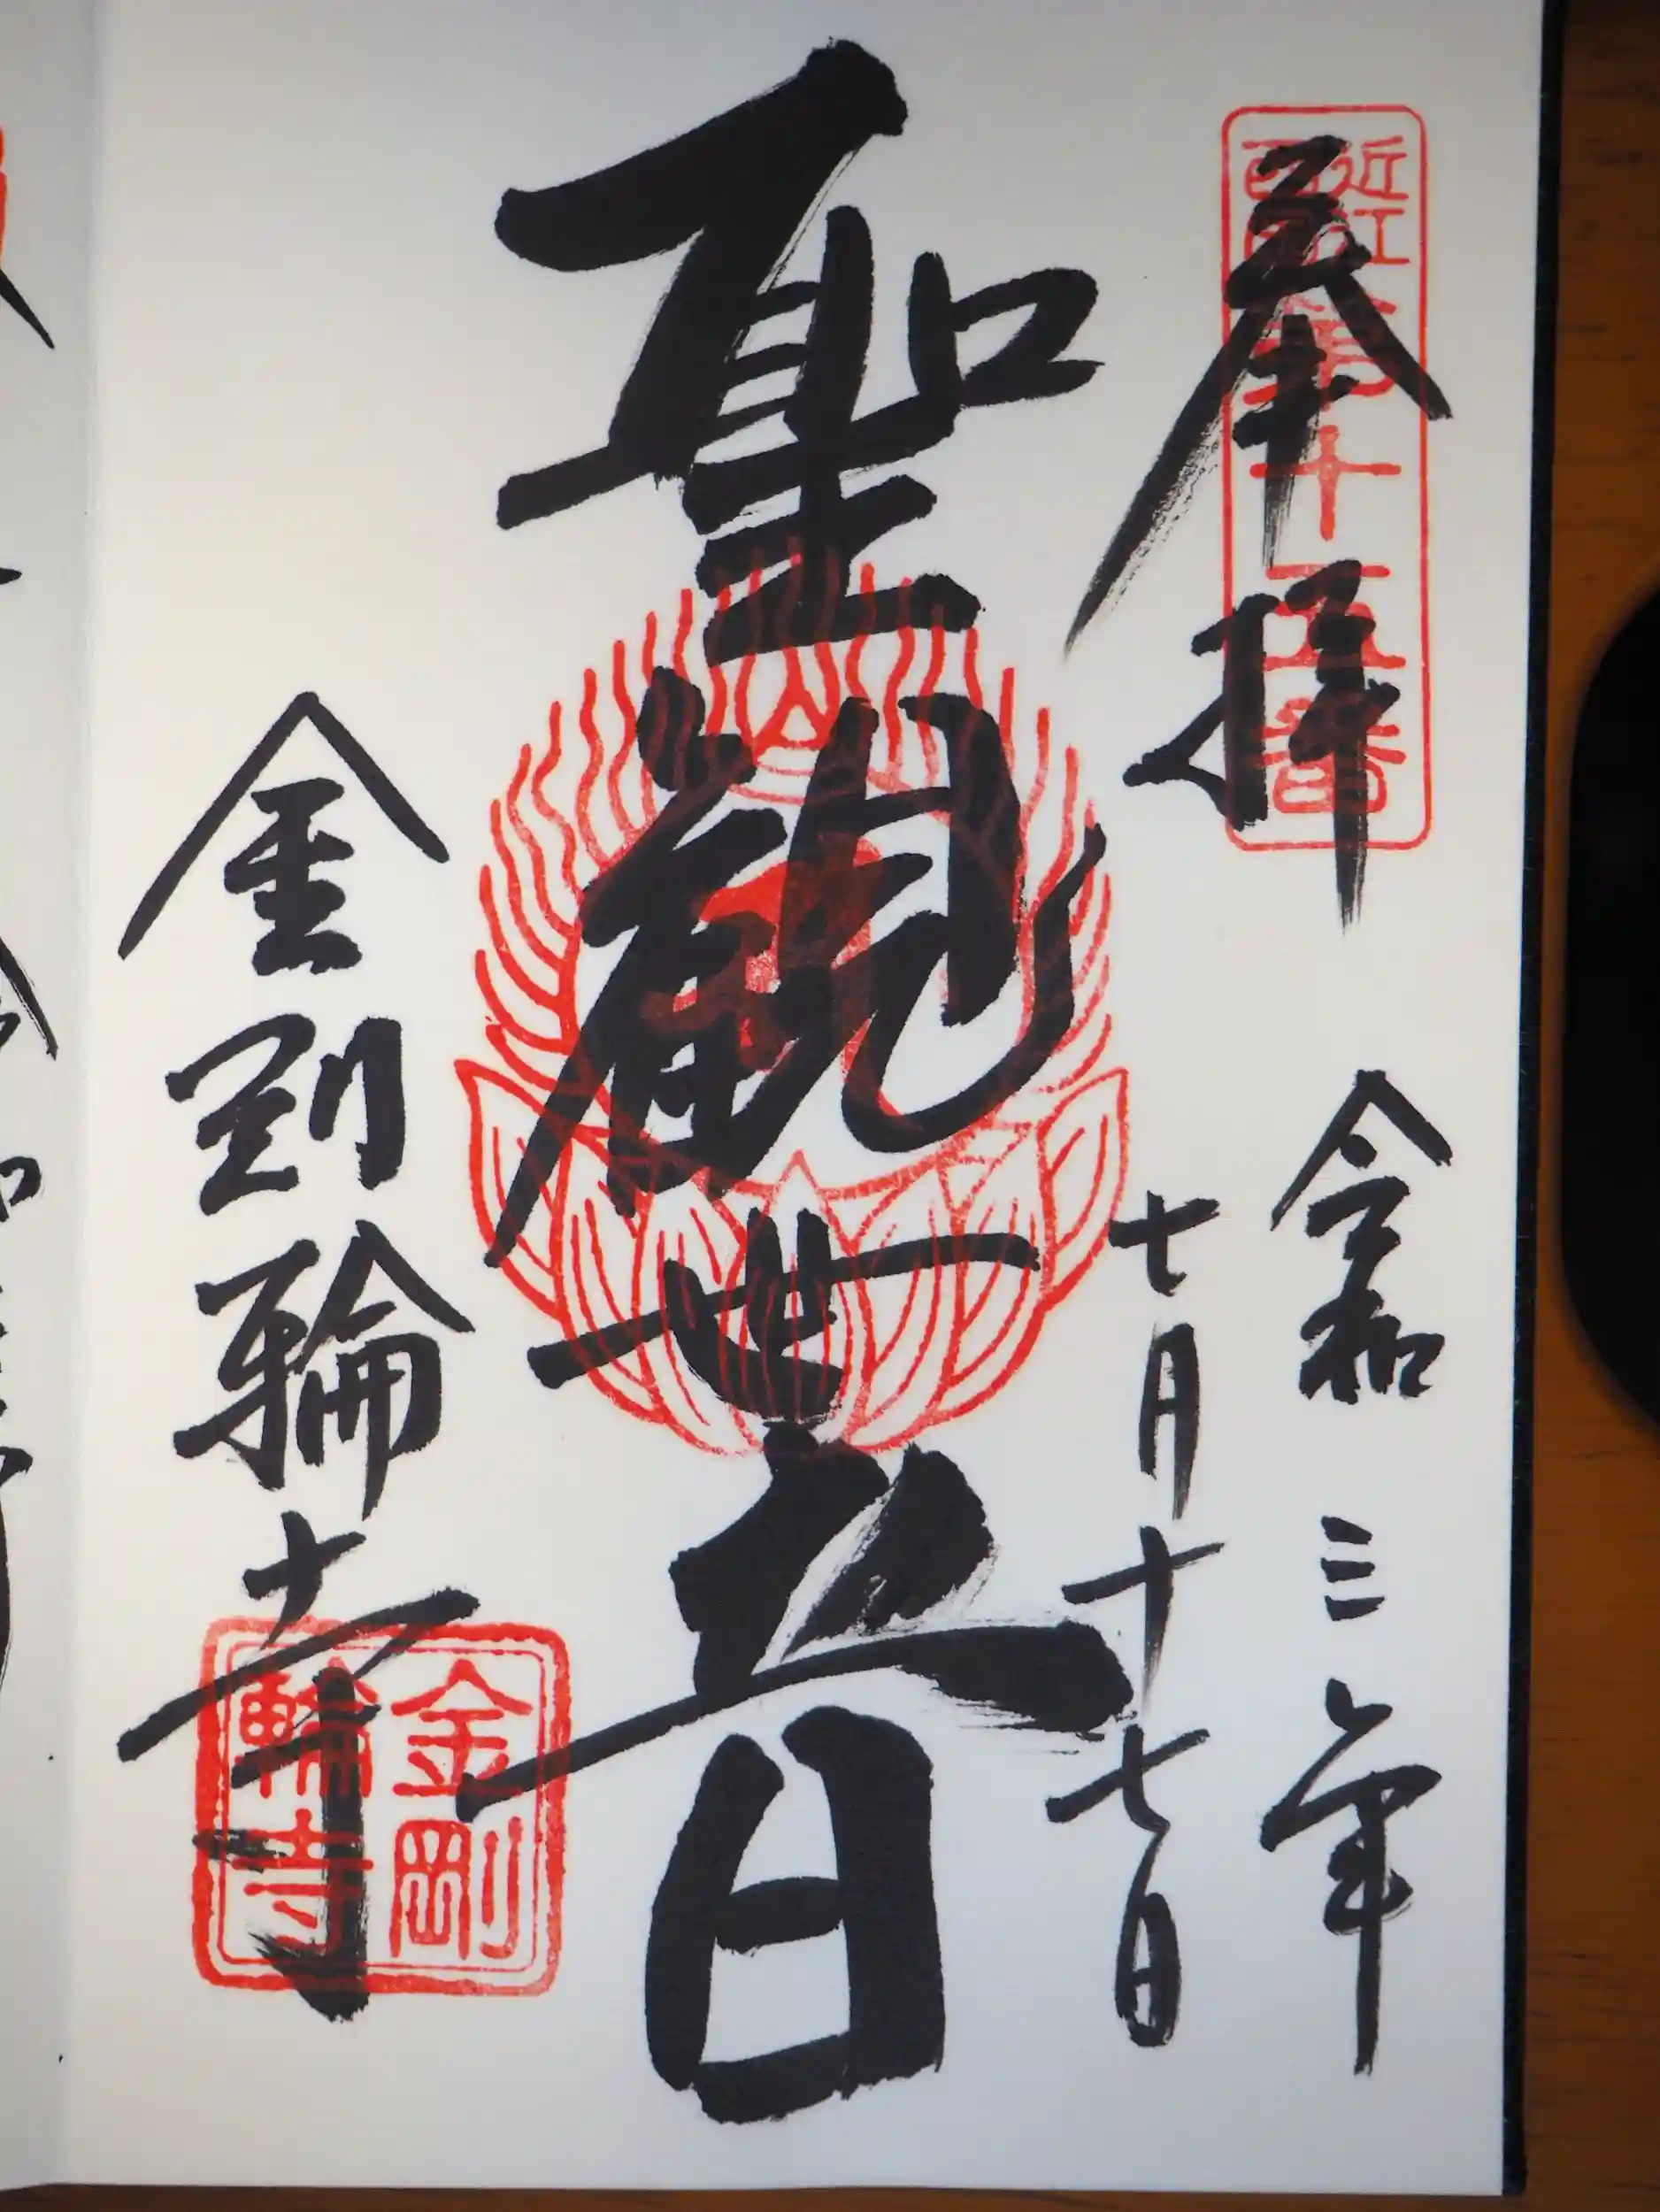 奉拝
近江西国第十五番
令和三年
七月十七日
聖観世音
金剛輪寺
金剛輪寺